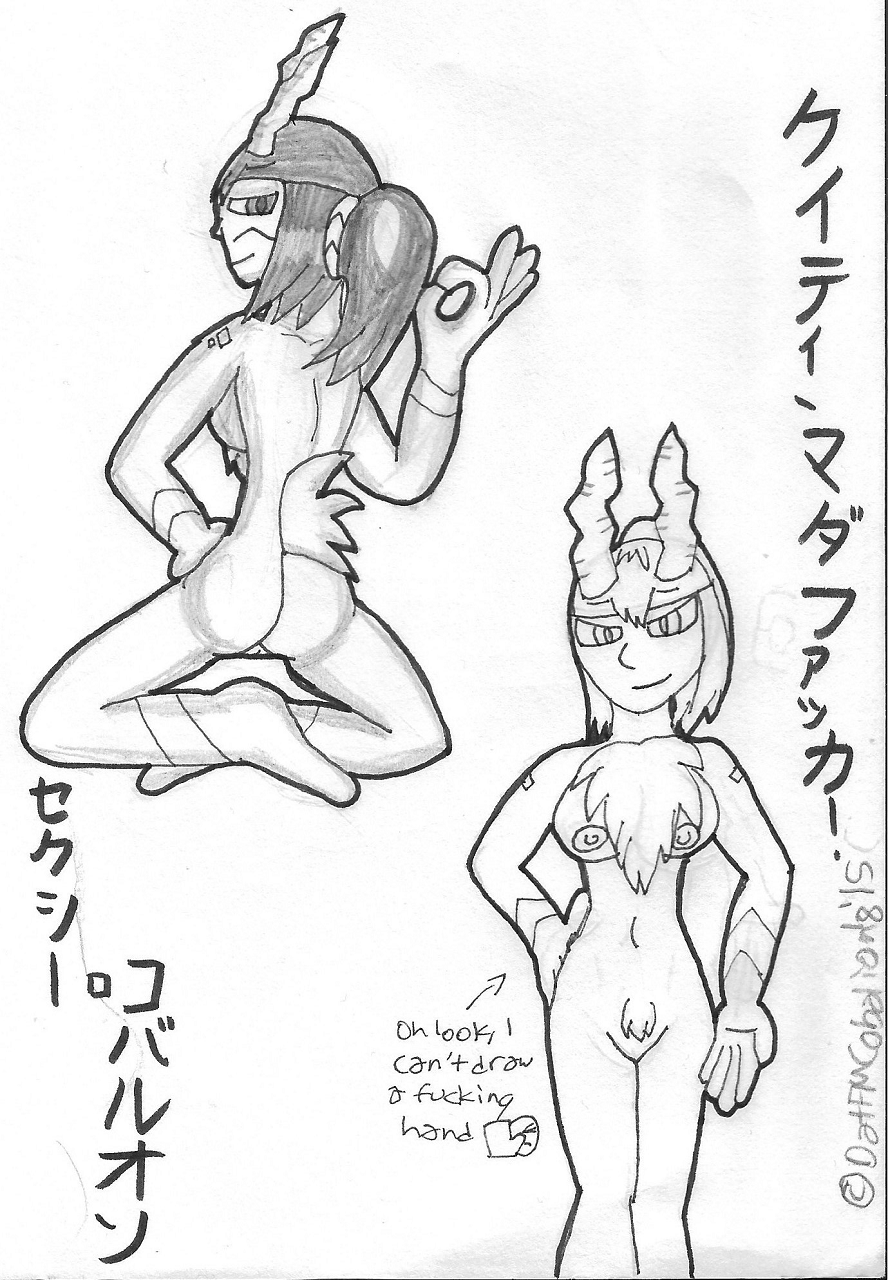 ケイティ、マダファッカー.
セクシー
コバルオン
Oh look, I
can't draw
a fucking
hand
©DatFMCobalion8'15